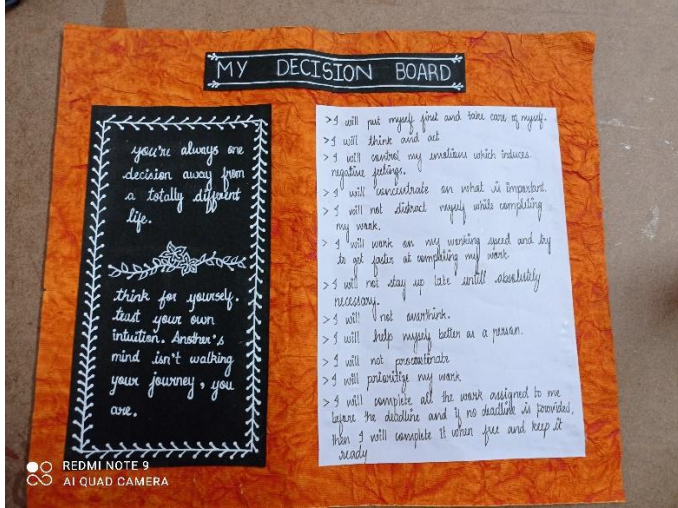 MY DECISION BOARD
you're always one
decision away from
a totally different
life.
think for yourself.
trust your own
intuition. Another's
mind isn't walking
your journey, you
are.
> I will put myself first and take care of myself.
> I will think and act
> I will control my emotions which induces
negative feelings.
> I will concentrate on what is important.
> I will not distract myself while completing
my work.
> I will work on my working speed and try
to get faster at completing my work.
> I will not stay up late untill absolutely
necessary.
> I will not overthink.
> I will help myself better as a person.
> I will not procastenate
> I will prioritize my work
> I will complete all the work assigned to me
before the deadline and if no deadline is provided,
then I will complete it when free and keep it
ready
REDMI NOTE 9
AI QUAD CAMERA